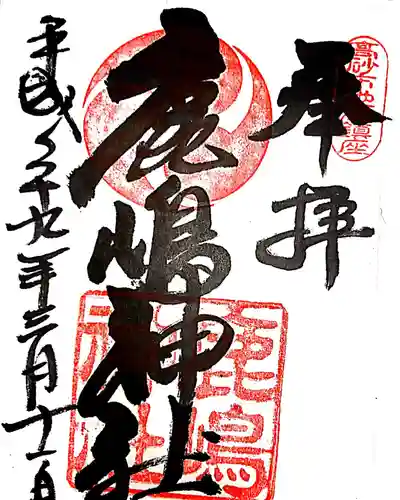 奉拝
高砂六神鎮座
鹿嶋神社
鹿嶋神社
平成二十九年三月十二日